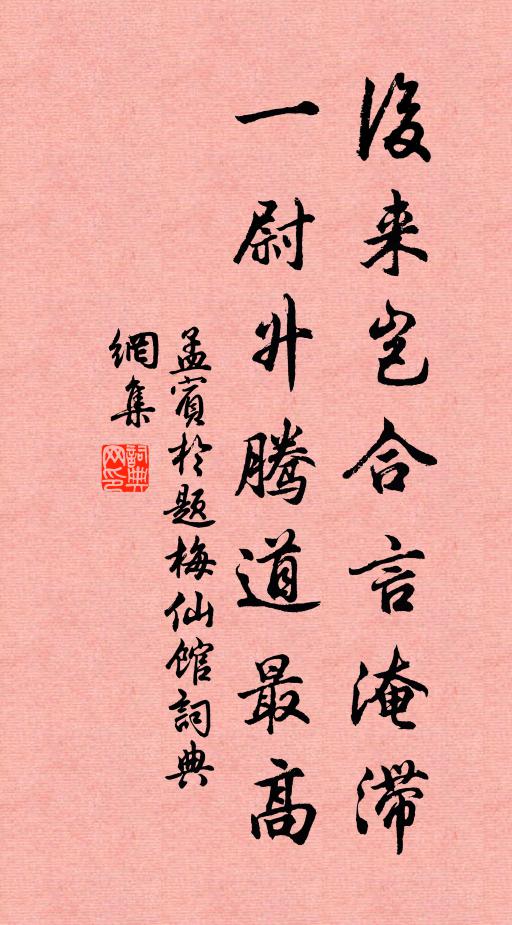 後来岂合言淹滞
一尉升腾道最高
孟宾於题梅仙馆词典
網集
詞典網印